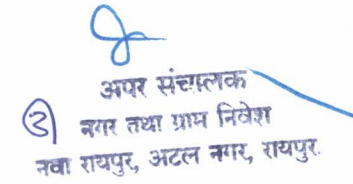 अपर संचालक
③ नगर तथा ग्राम निवेश
नवा रायपुर, अटल नगर, रायपुर